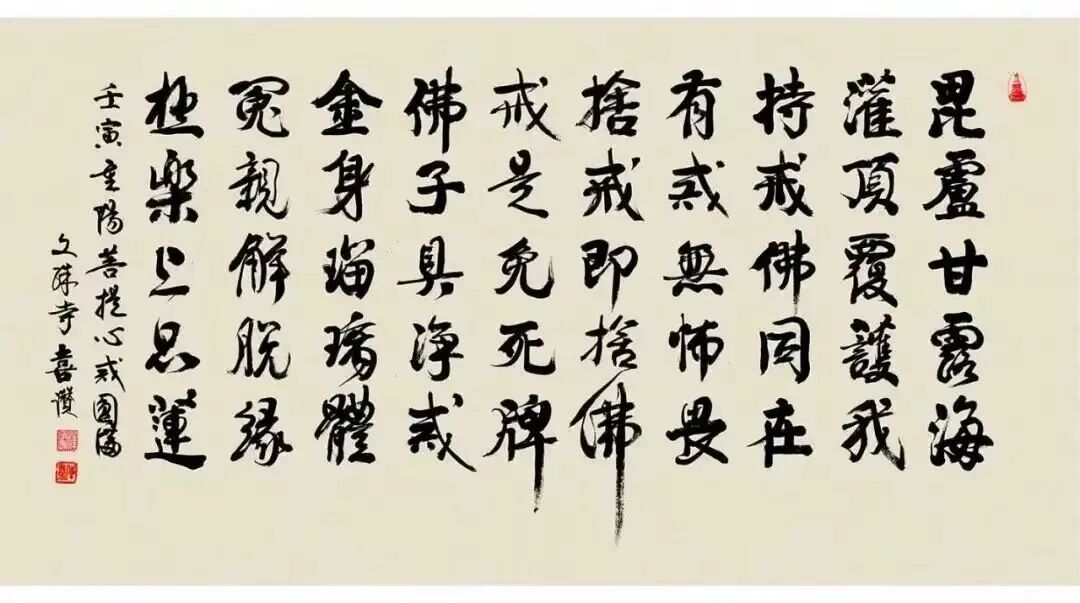 毘盧甘露海
灌頂覆護我
持戒佛同在
有戒無怖畏
捨戒即捨佛
戒是免死牌
佛子具淨戒
金身瑠璃體
冤親解脫緣
極樂上品蓮
壬寅重陽菩提心戒圓滿
文殊寺喜讚